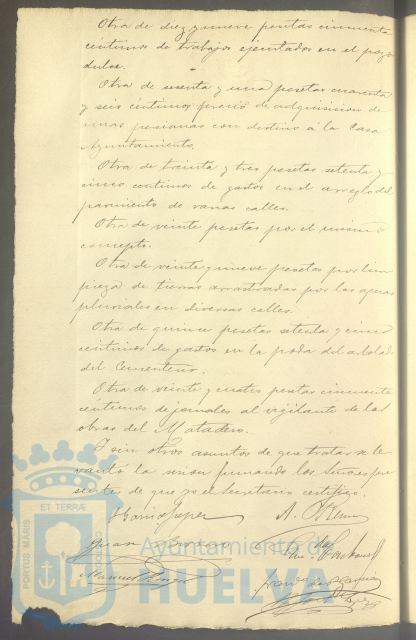 Otra de diez y nueve pesetas cincuenta
centimos de trabajos ejecutados en el pozo
dulce.
Otra de sesenta y una pesetas cuarenta
y seis centimos precio de adquisicion de
unas persianas con destino á la Casa
Ayuntamiento.
Otra de treinta y tres pesetas setenta y
cinco centimos de gastos en el arreglo del
pavimento de varias calles.
Otra de veinte pesetas por el mismo
concepto.
Otra de veinte y nueve pesetas por lim
pieza de tierras arrastradas por las aguas
pluviales en diversas calles.
Otra de quince pesetas setenta y cinco
centimos de gastos en la poda del arbolado
del Cementerio.
Otra de veinte y cuatro pesetas cincuenta
centimos de jornales al vigilante de las
obras del Matadero.
Y sin otros asuntos de que tratar se le
vantó la sesion firmando los Señores pre
sentes de que yo el Secretario certifico.
Garcia Lopez
Juan
Manuel
PORTUS MARIS ET TERRÆ
Ayuntamiento de
HUELVA